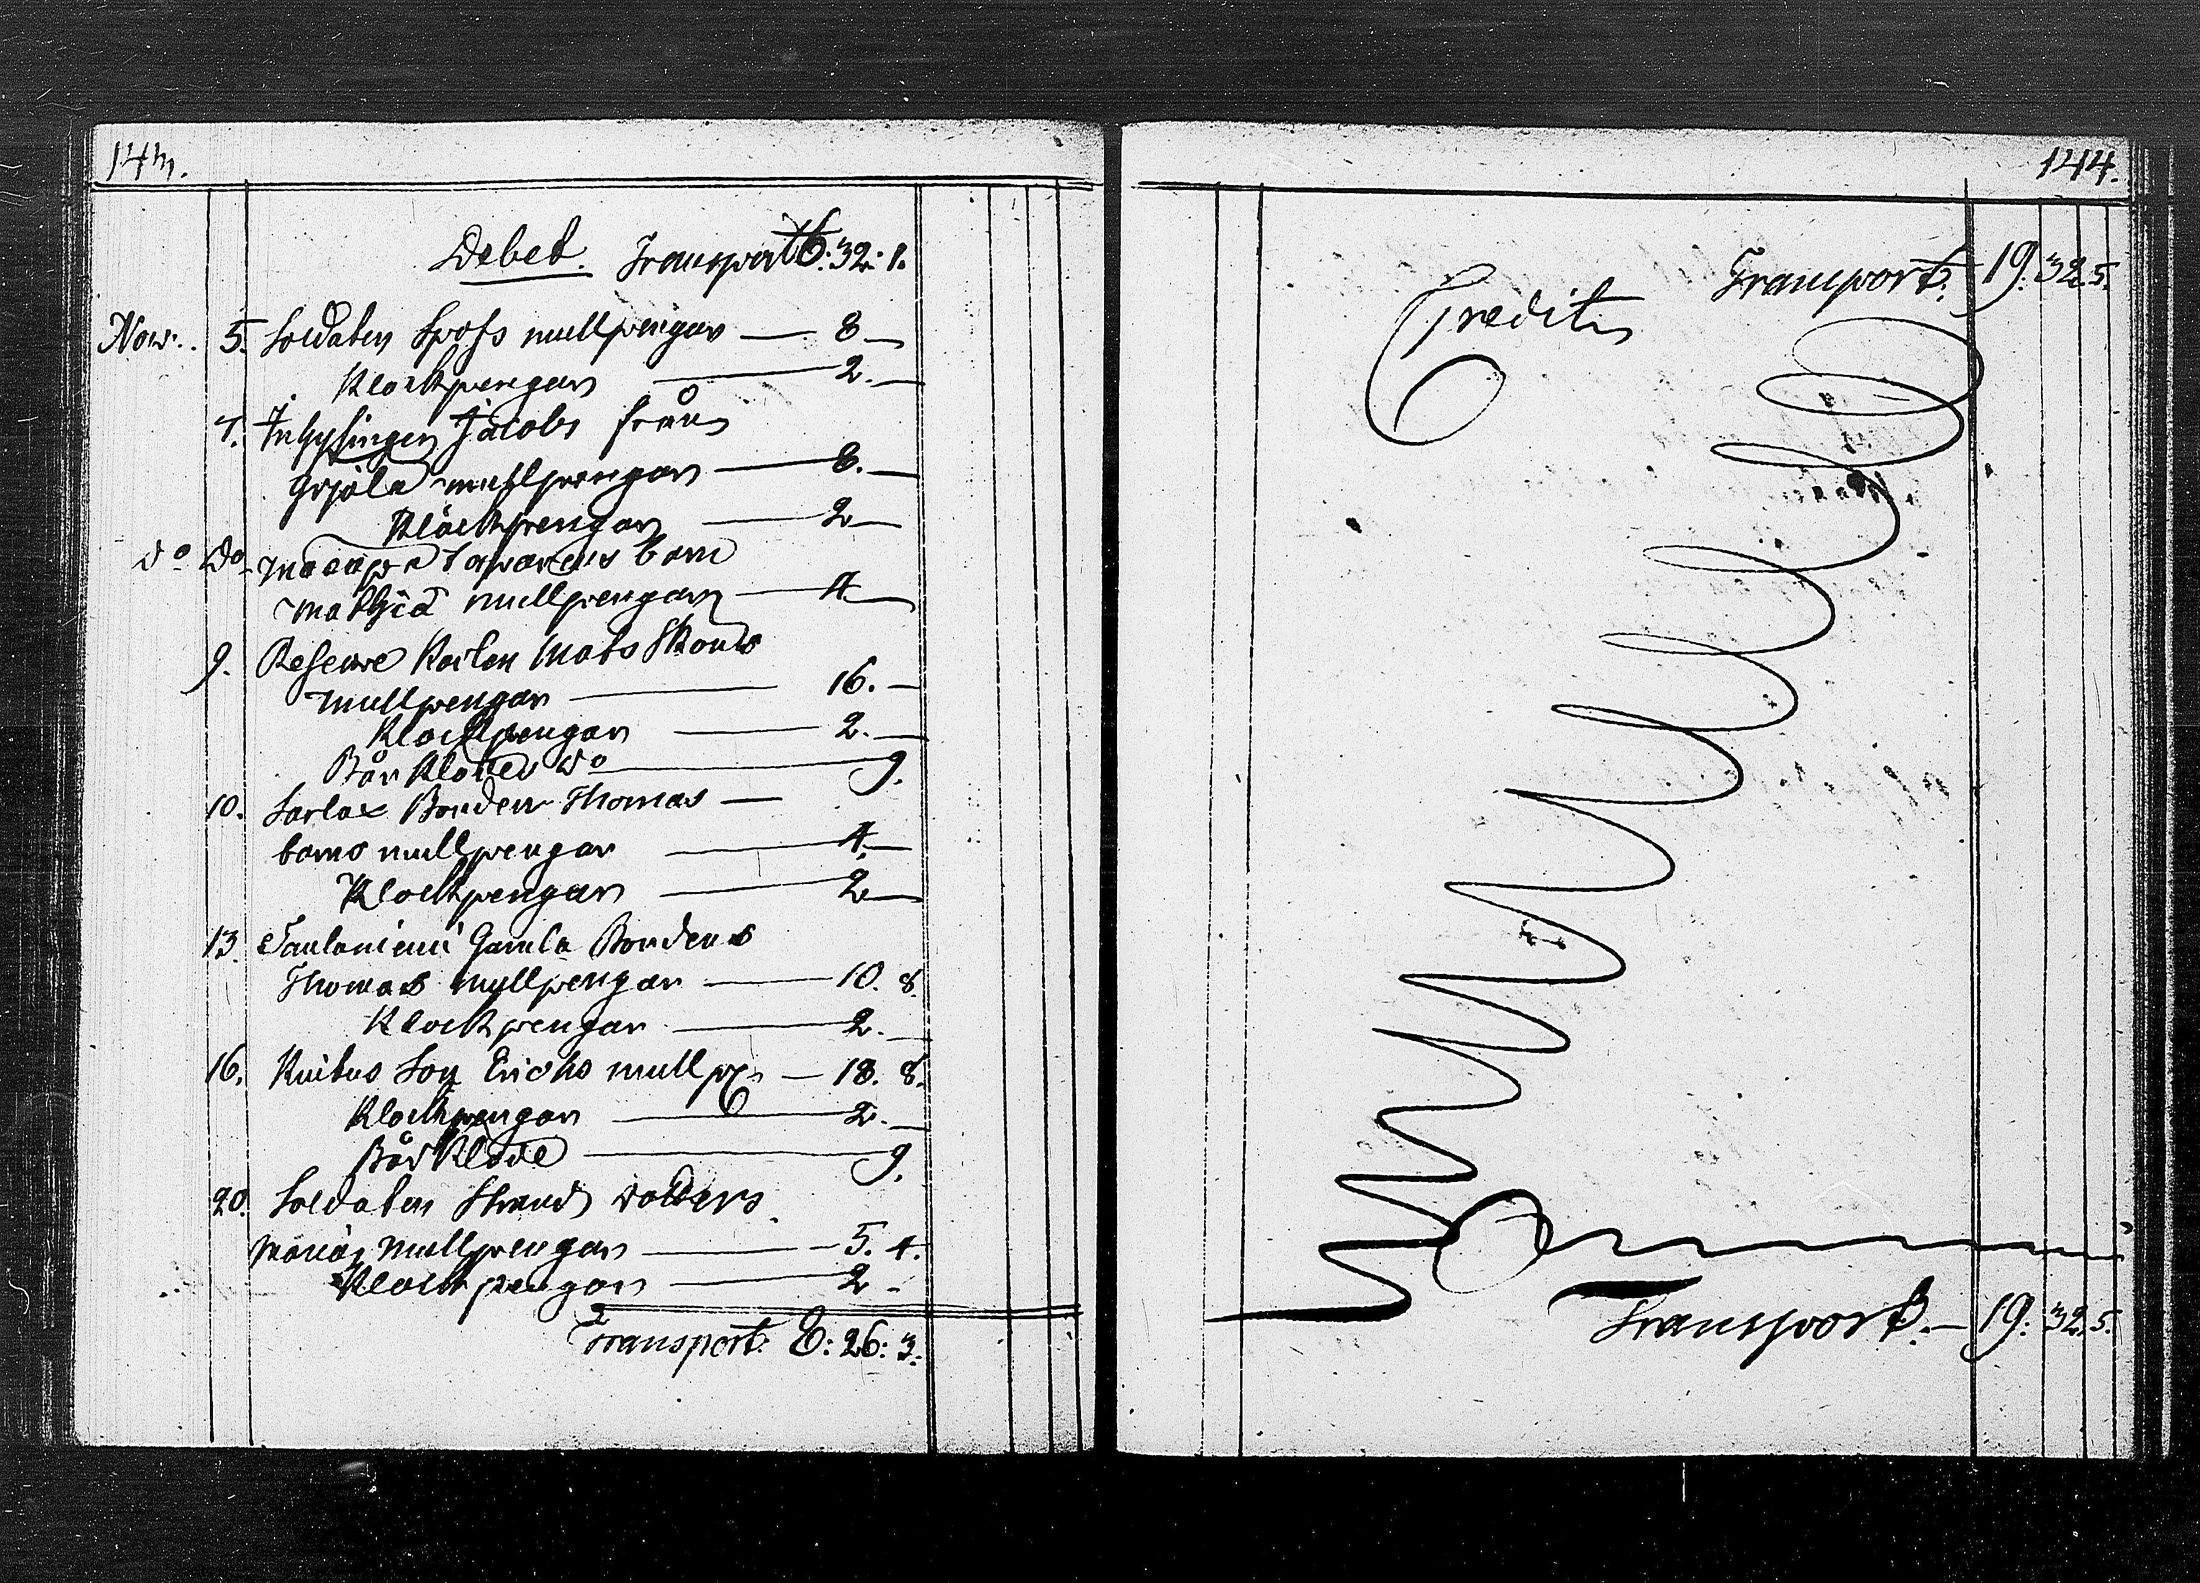 143.
Debet. Transport 6: 32: 1.
Nov: 5. Soldaten Spofs mullpengar — 8 —
Klockpengar — 2. —
7. Inhysingen Jacobs från
Grjola mullpengar — 8. —
Klockpengar — 2 —
do do barn
Mathia mullpengar — 4. —
9. Reserve Karlen Mats Skouts
mullpengar — 16. —
Klockpengar — 2. —
Bår Kloder do — 9.
10. Sarlax Bonden Thomas —
barns mullpengar — 4. —
Klockpengar — 2 —
13. Saulaniemi Gamla Bondens
Thomas myllpengar — 10. 8.
Klockpengar — 2. —
16. Kuitus Son Erichs mullpr — 18. 8.
Klockpengar — 2. —
Bår Kläde — 9.
20. Soldaten Strands dotters
Marias mullpengar — 5. 4.
Klockpengar — 2 -
Transport: 8: 26: 3.
144.
Credit Transport: 19: 32. 5.
Transport. — 19: 32. 5.